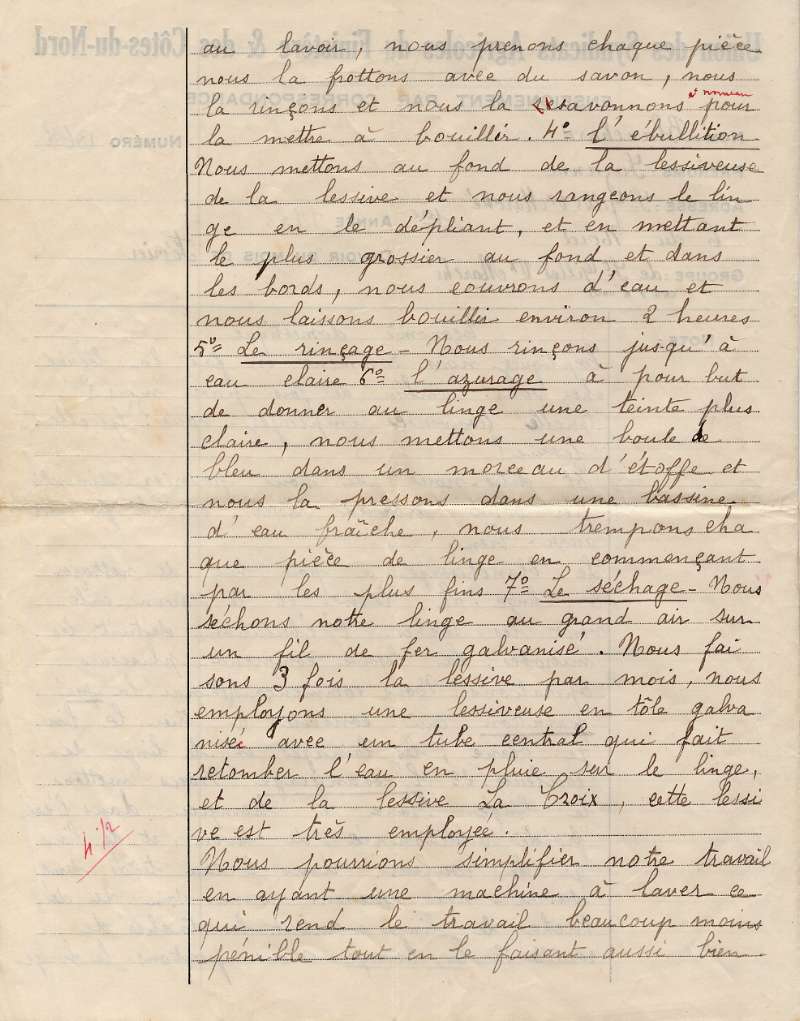 au lavoir, nous prenons chaque pièce
nous la frottons avec du savon, nous
la rinçons et nous la savonnons à nouveau pour
la mettre à bouillir. 4º= l'ébullition
Nous mettons au fond de la lessiveuse
de la lessive et nous rangeons le lin
ge en le dépliant, et en mettant
le plus grossier au fond et dans
les bords, nous couvrons d'eau et
nous laissons bouillir environ 2 heures
5º= Le rinçage - Nous rinçons jusqu'à
eau claire 6º= l'azurage à pour but
de donner au linge une teinte plus
claire, nous mettons une boule de
bleu dans un morceau d'étoffe et
nous la pressons dans une bassine
d'eau fraîche, nous trempons cha
que pièce de linge en commençant
par les plus fins 7º= Le séchage - Nous
séchons notre linge au grand air sur
un fil de fer galvanisé. Nous fai
sons 3 fois la lessive par mois, nous
employons une lessiveuse en tôle galva
nisée avec un tube central qui fait
retomber l'eau en pluie sur le linge,
et de la lessive La Croix, cette lessi
ve est très employée.
4 1/2
Nous pourrions simplifier notre travail
en ayant une machine à laver ce
qui rend le travail beaucoup moins
pénible tout en le faisant aussi bien